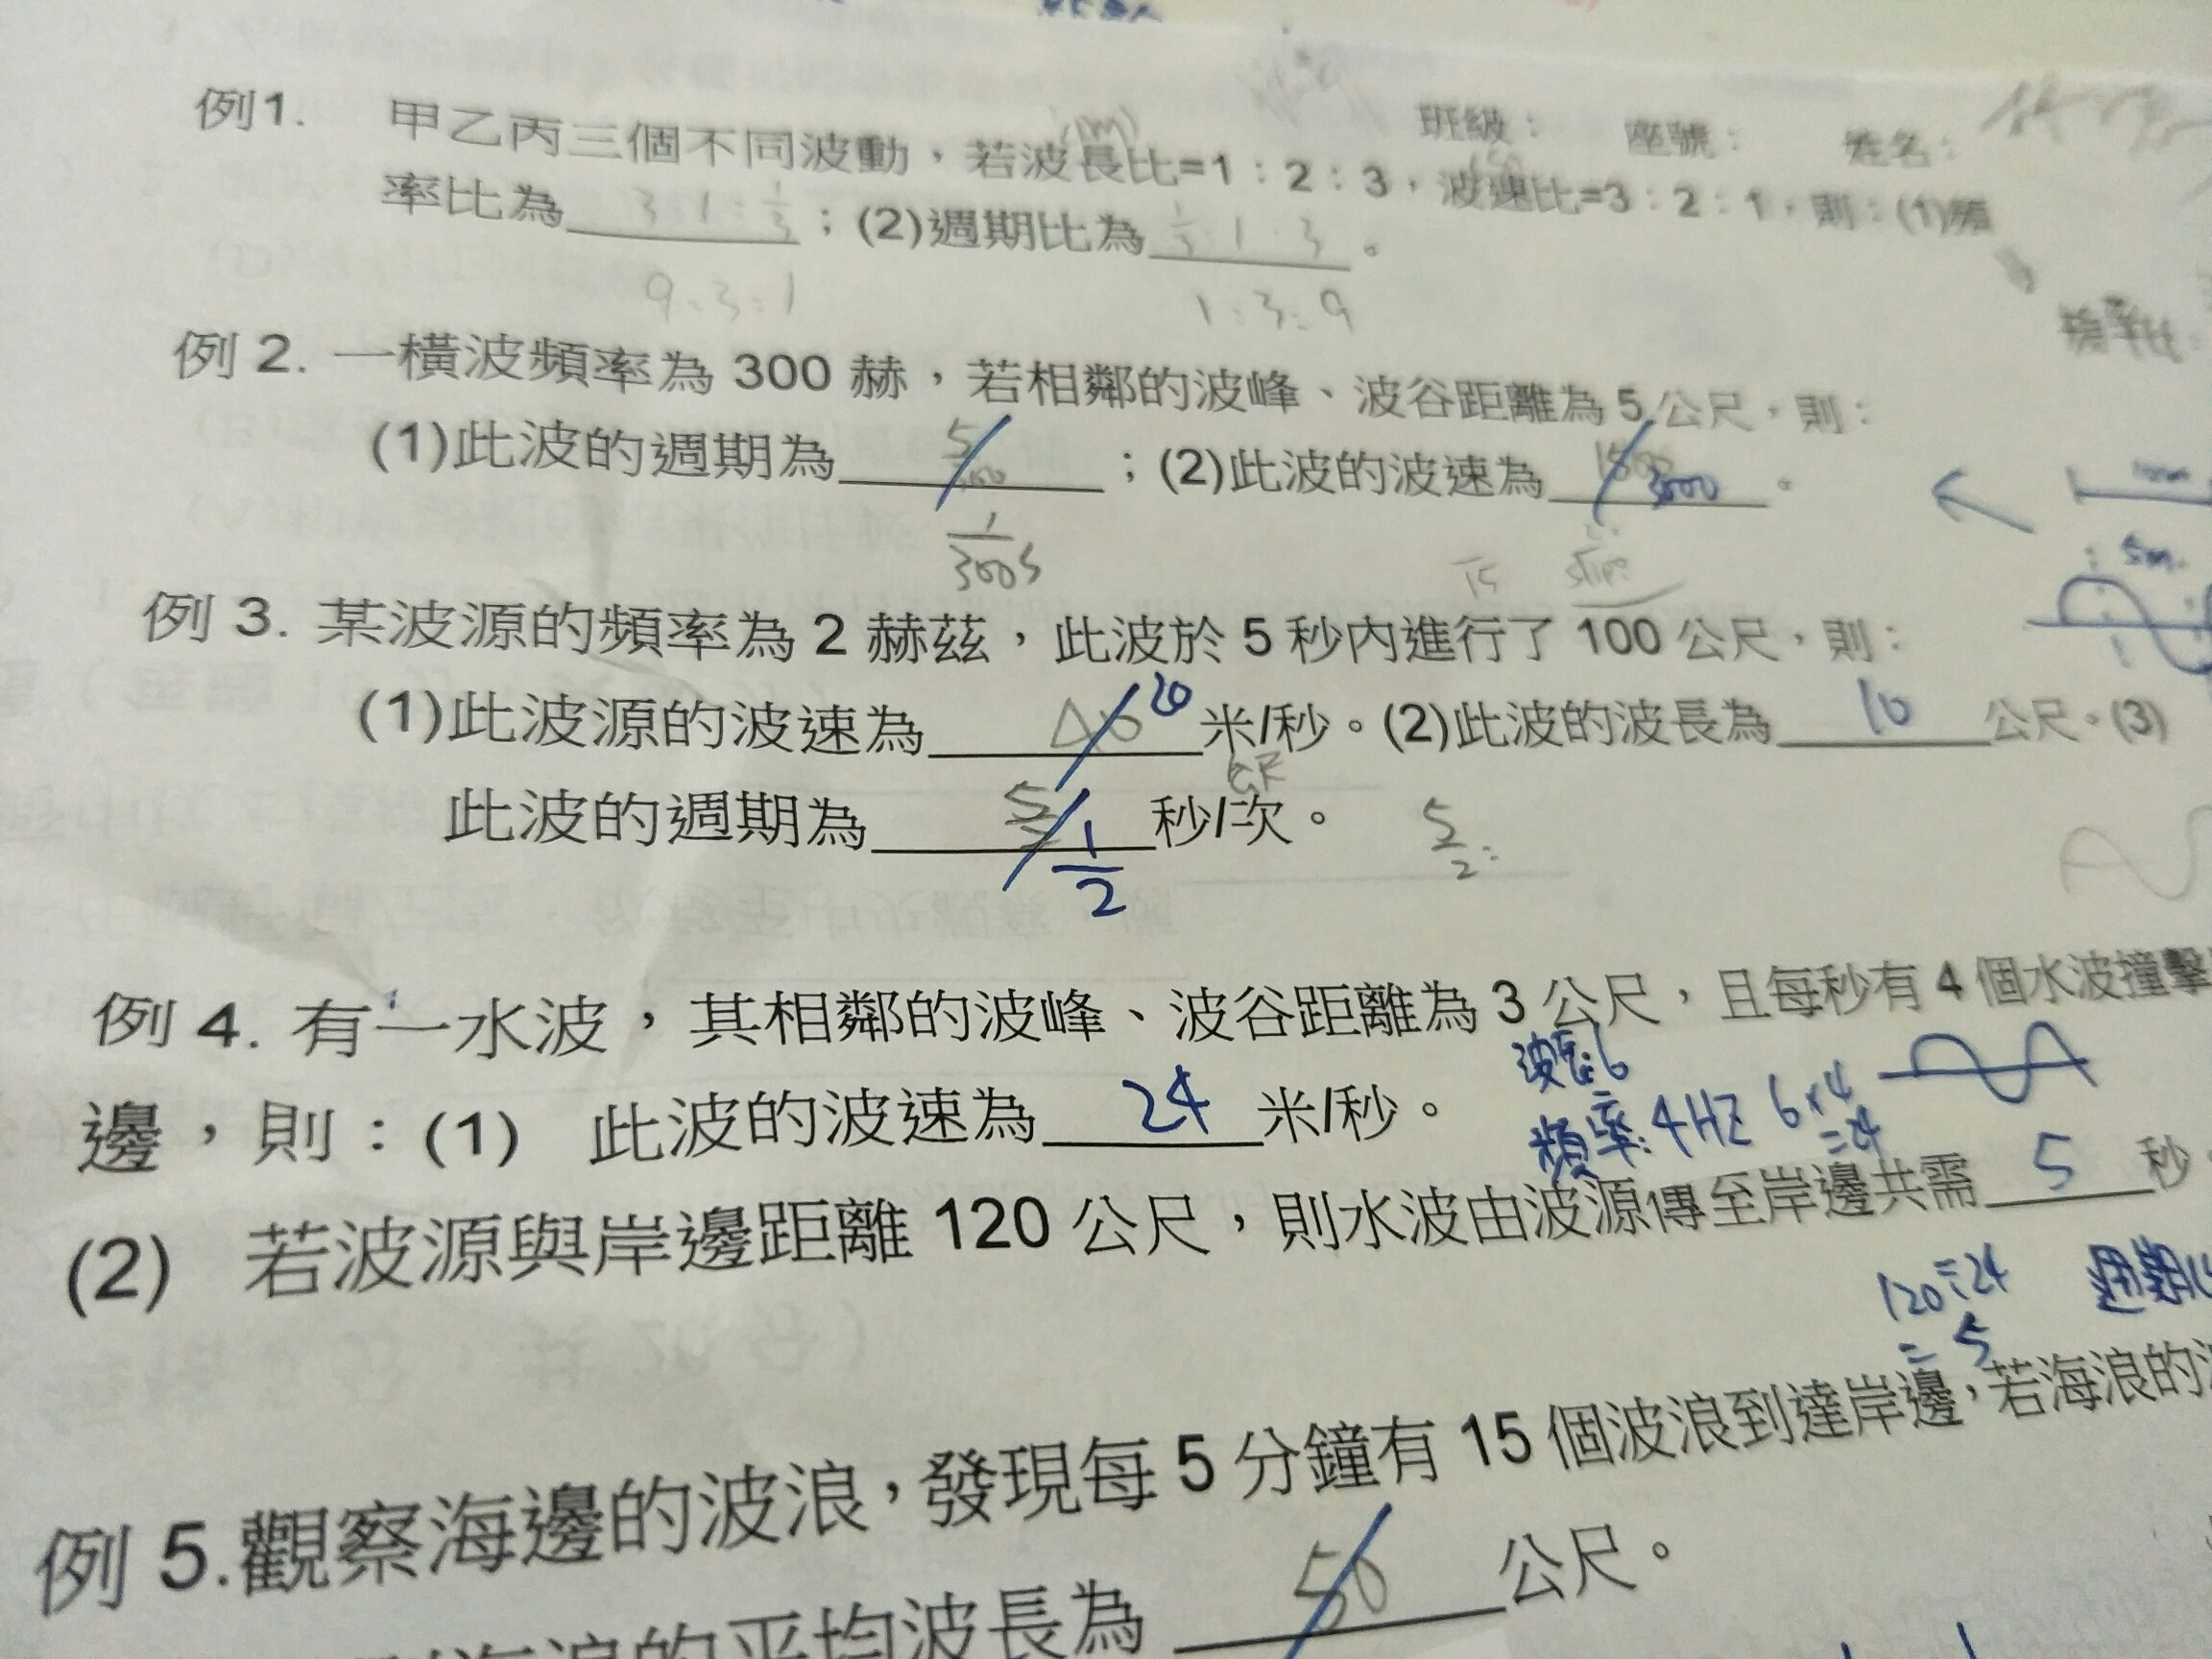 班級： 座號： 姓名：
例1. 甲乙丙三個不同波動，若波長比=1：2：3，波速比=3：2：1，則：(1)頻
(m)
率比為 3:1:1/3 ；(2)週期比為 1/3:1:3 。
9:3:1 1:3:9
頻率比
例 2. 一橫波頻率為 300 赫，若相鄰的波峰、波谷距離為 5 公尺，則：
(1)此波的週期為 ；(2)此波的波速為 3000 。
1/300 s
5m
例 3. 某波源的頻率為 2 赫茲，此波於 5 秒內進行了 100 公尺，則：
(1)此波源的波速為 20 米/秒。(2)此波的波長為 10 公尺。(3)
此波的週期為 5/2 1/2 秒/次。
5/2
例 4. 有一水波，其相鄰的波峰、波谷距離為 3 公尺，且每秒有 4 個水波撞擊
波長:6
邊，則：(1) 此波的波速為 24 米/秒。
頻率:4HZ 6×4
=24
(2) 若波源與岸邊距離 120 公尺，則水波由波源傳至岸邊共需 5 秒。
120÷24 週期
= 5
例 5.觀察海邊的波浪，發現每 5 分鐘有 15 個波浪到達岸邊，若海浪的
海浪的平均波長為 50 公尺。